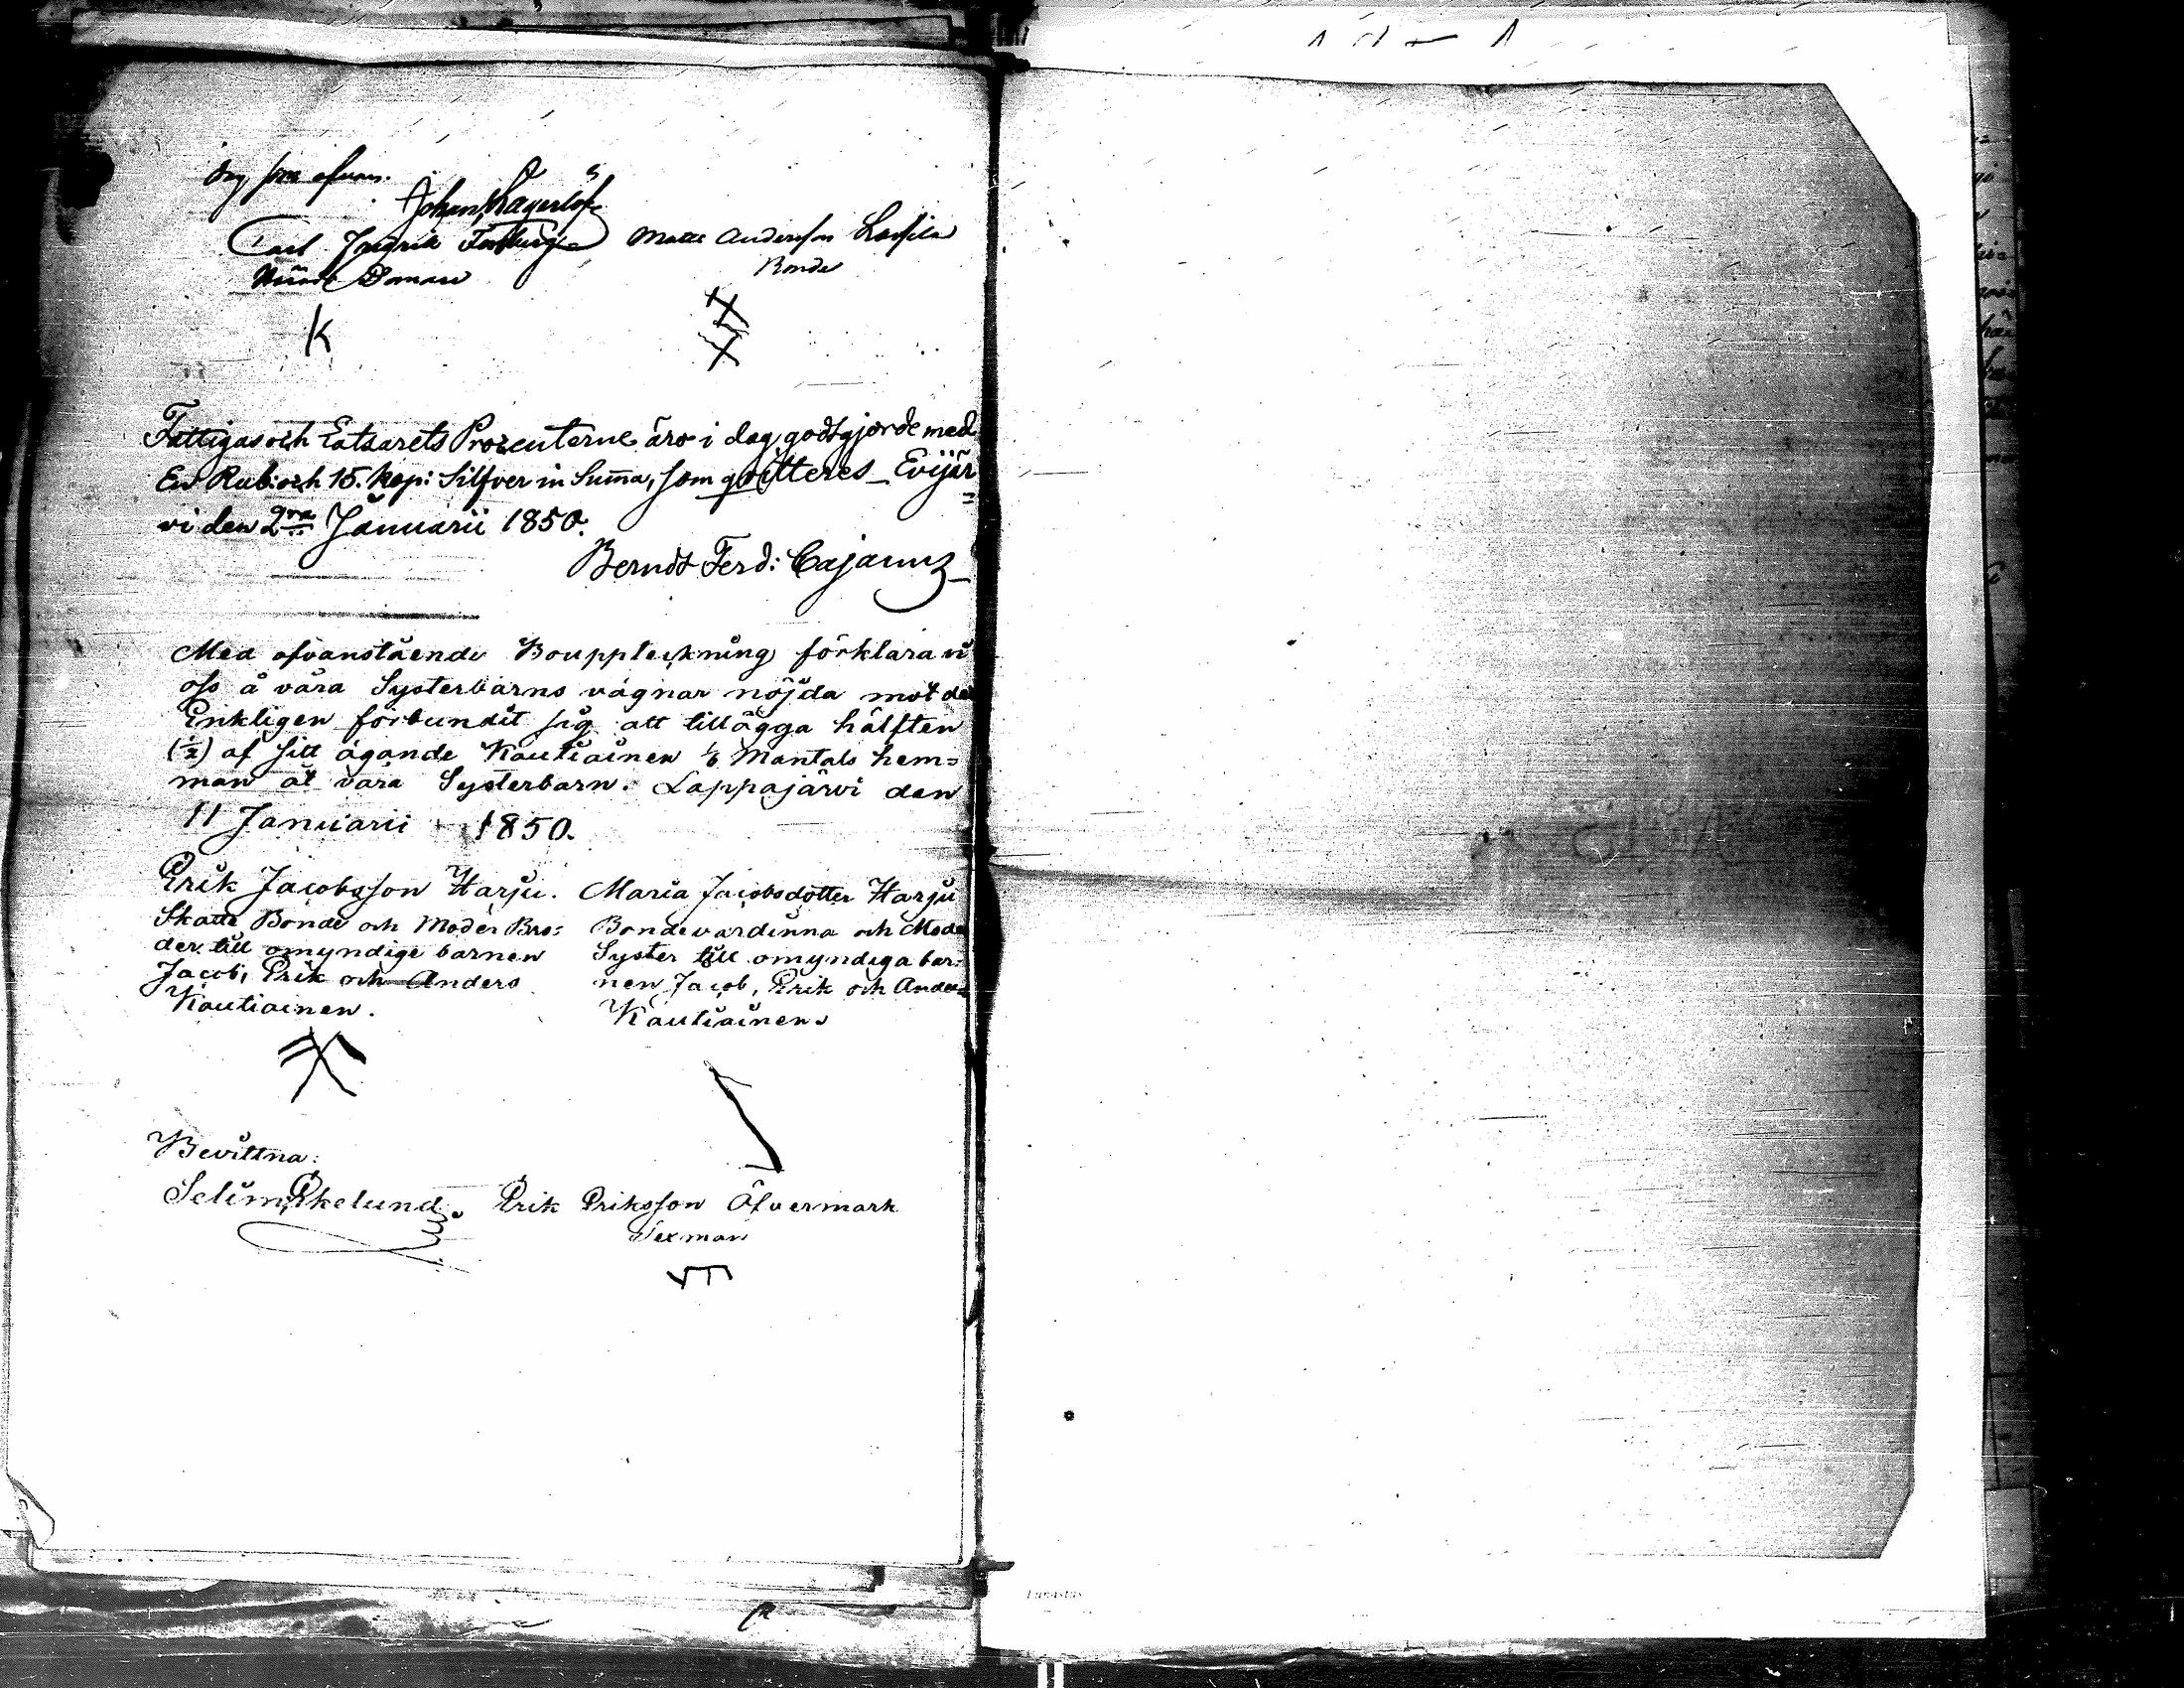 dag som ofvan.
Johan Lagerlöf
Carl Fredrik Forsberg Matts Andersson Lassila
Nämndeman Bonde
K
Fattigas och Latsarets Procenterne äro i dag godtgjorde med
En Rub: och 15. kop: Silfver in Summa, som qvitteres_ Evijär=
vi den 2dra Januarii 1850.
Berndt Ferd: Cajanus
Med ofvanstående Bouppteckning förklara vi
oss å våra Systerbarns vägnar nöjda mot det
Enklingen förbundit sig att tillägga hälften
(1/2) af sitt ägande Kautiainen 1/6 Mantals hem=
man åt våra Systerbarn. Lappajärvi den
11 Januarii 1850.
Erik Jacobsson Harju. Maria Jacobsdotter Harju
Skatte Bonde och Moder Bro= Bondevärdinna och Moder
der till omyndige barnen Syster till omyndiga bar=
Jacob, Erik och Anders nen Jacob, Erik och Anders
Kautiainen. Kautiainen.
Bevittna:
Selim Ekelund. Erik Eriksson Öfvermark
Sexman